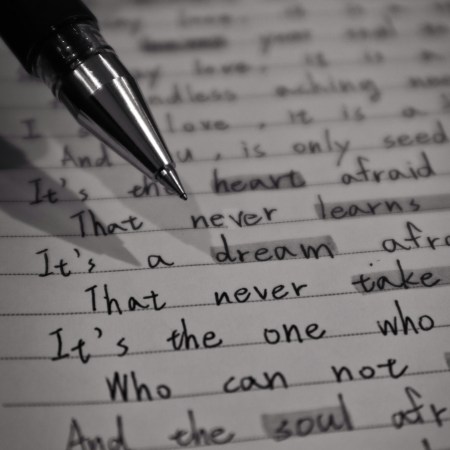 love, it is a
endless aching
I love, it is a
And u, is only seed
It's the heart afraid
That never learns
It's a dream afr
That never take
It's the one who
Who can not
And the soul afr